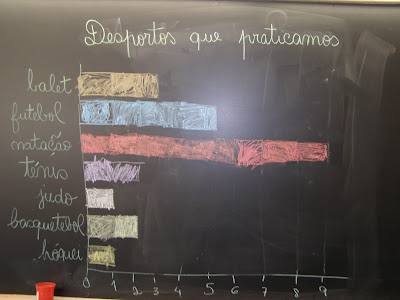 Desportos que praticamos
balet
futebol
natação
ténis
judo
basquetebol
hóquei
0 1 2 3 4 5 6 7 8 9